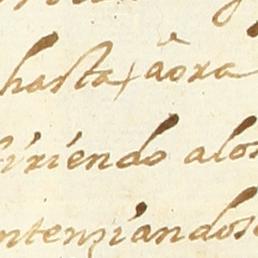 hasta, aôra
iriendo alos
ntenziandose